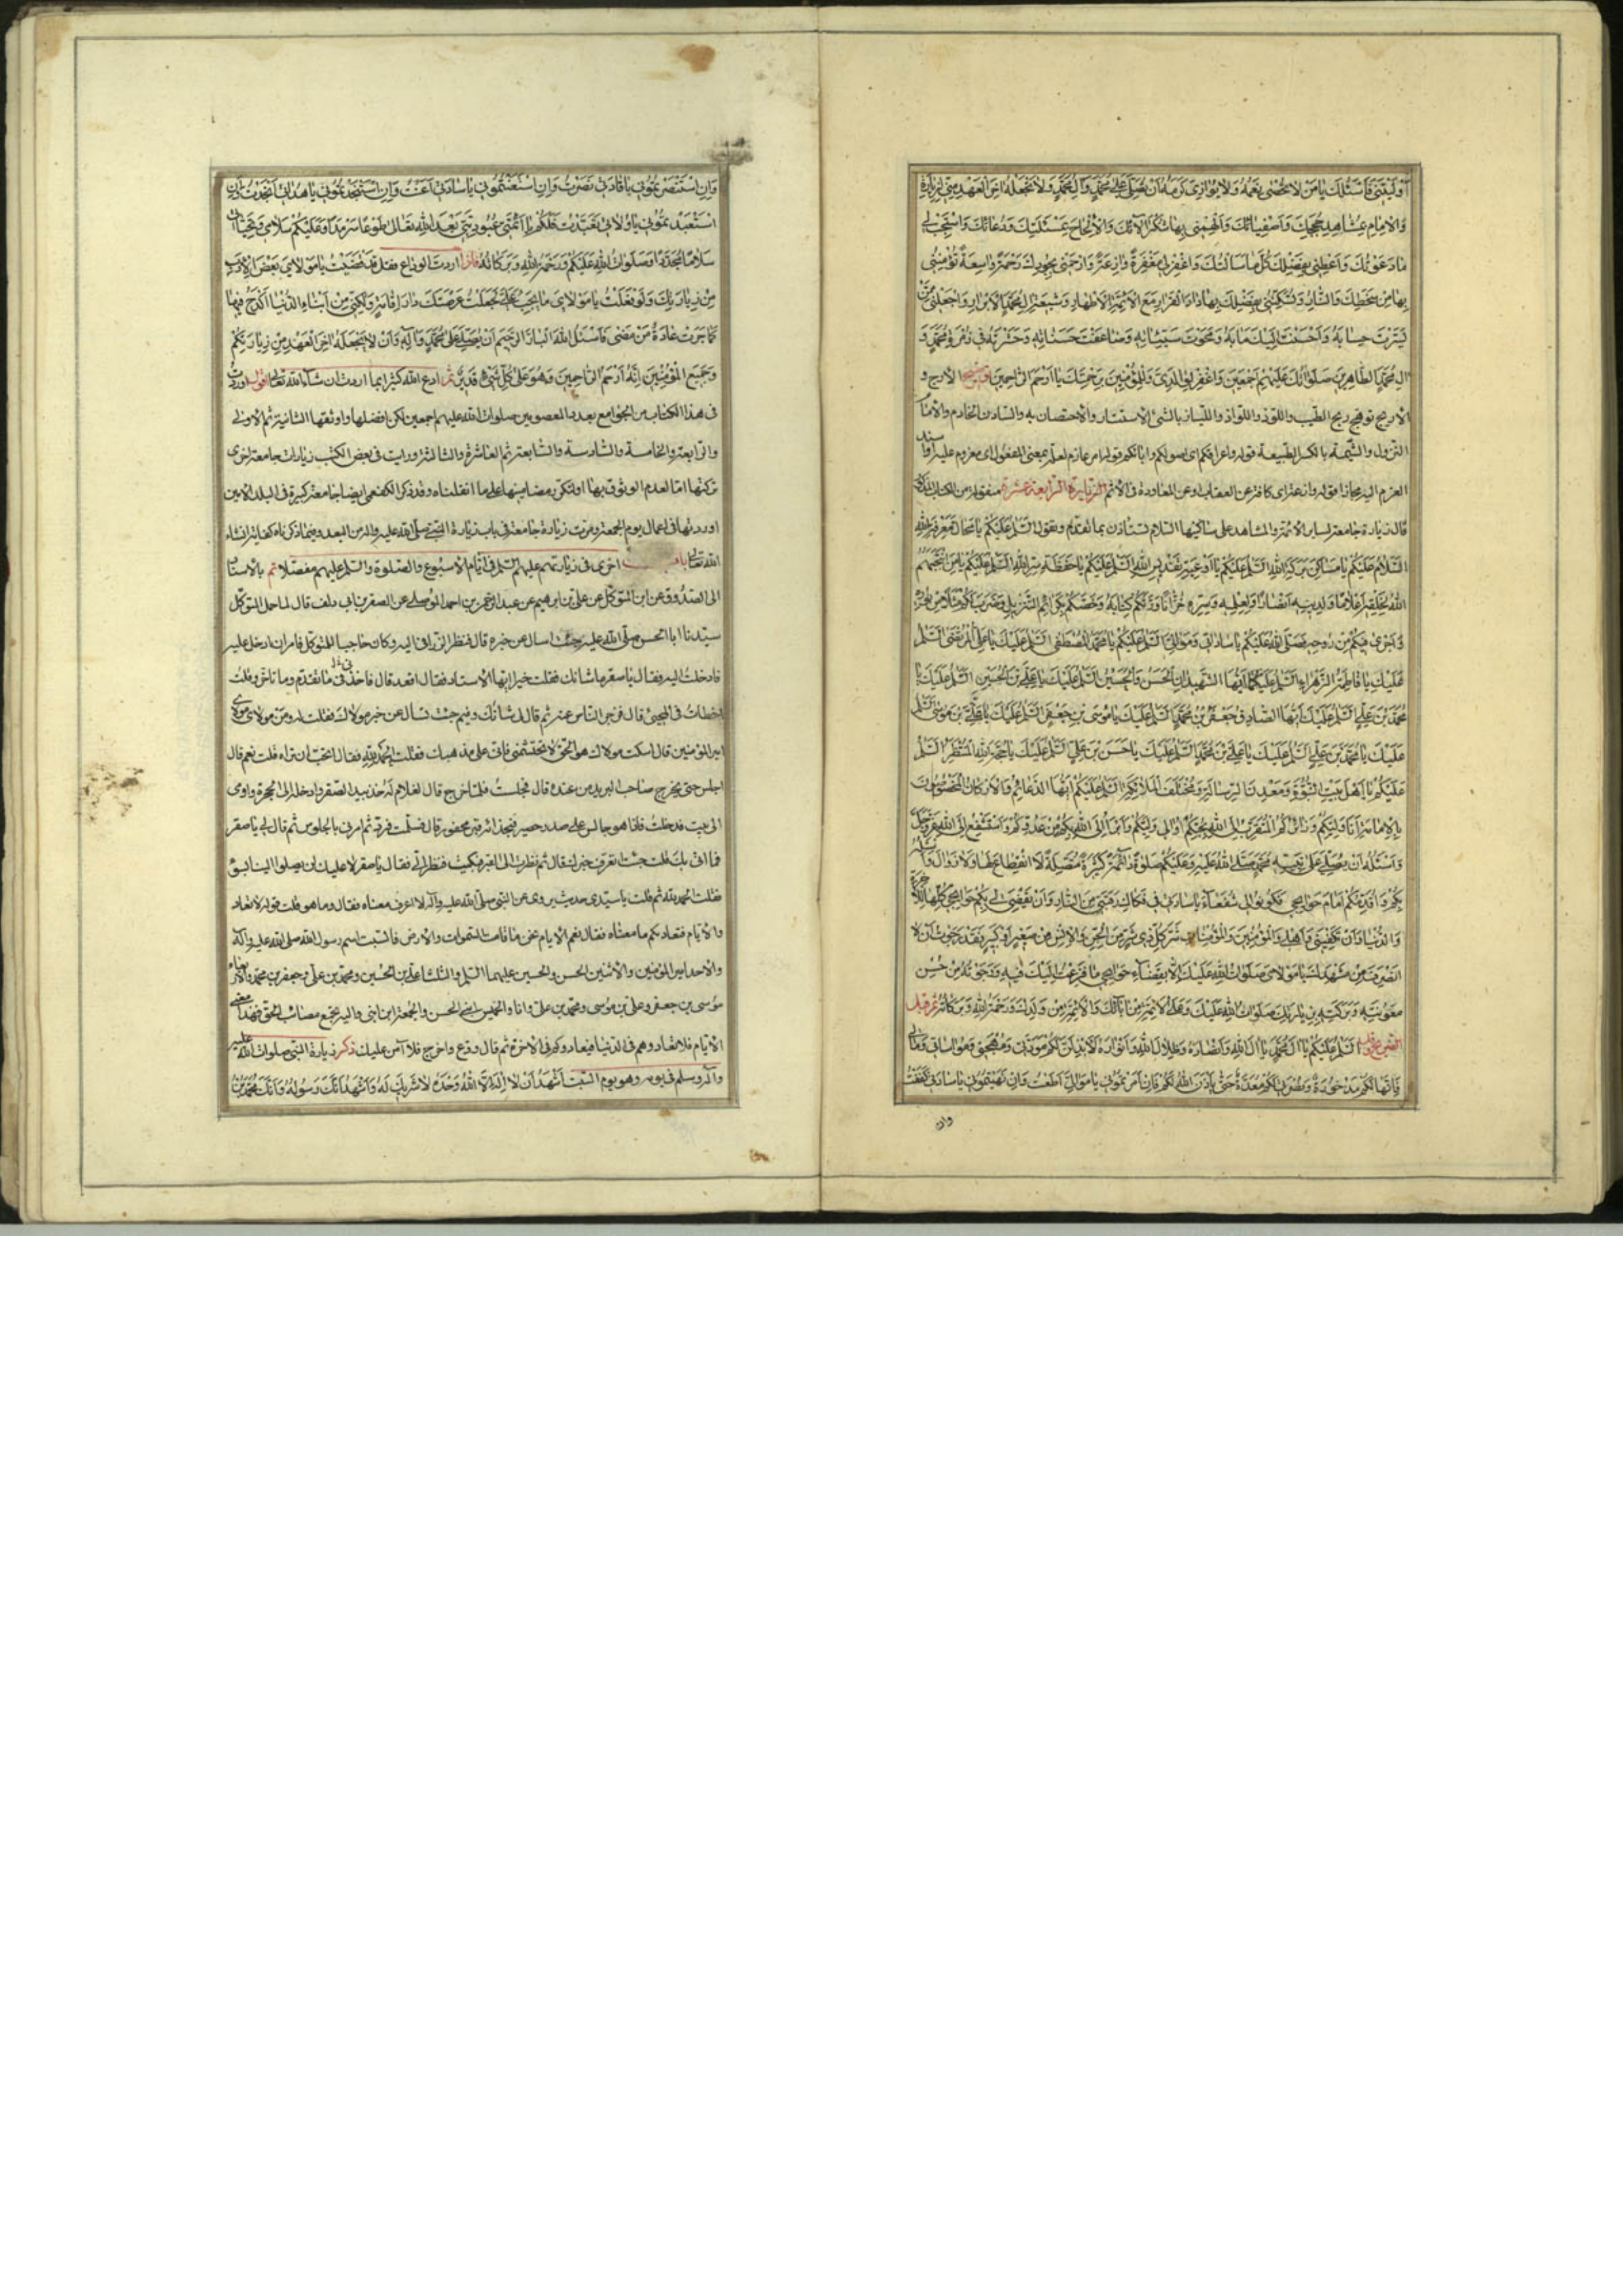 أوليتني فأسئلك يا من لا تحصى نعمه ولا يوازى كرمه أن تصلي على محمد وآل محمد ولا تجعله آخر العهد مني لزيارة
والإلمام بمشاهد حججك وأصفيائك وألهمني بها شكر آلائك والإلحاح بمسئلتك ودعائك واستجب لي
ما دعوتك وأعطني بفضلك كل ما سألتك واغفر لي مغفرة وارحمني بجودك رحمة واسعة تؤمنني
بها من سخطك والنار وتسكنني بفضلك بها دار القرار مع الأئمة الأطهار وشيعة آل محمد الأبرار واجعلني ممن
يسرت حسابه وأحسنت إليك مآبه ومحوت سيئاته وضاعفت حسناته وحشرته في زمرة محمد و
آل محمد الطاهرين صلواتك عليهم أجمعين واغفر لوالدي وللمؤمنين برحمتك يا أرحم الراحمين الأرج و
الأريج توهج ريح الطيب واللوذ واللواذ واللياذ بالشئ الاستتار والاحتصان به والسادن الخادم
النزول والشيمة بالكسر الطبيعة قوله
الزيارة الرابعة عشرة
قال زيارة جامعة لساير الأئمة والمشاهد على ساكنيها السلام تستأذن بما تقدم وتقول السلم عليكم يا محال معرفة الله
السلام عليكم يا مساكن بركة الله السلم عليكم يا أوعية تقديس الله السلم عليكم يا حفظة سر الله السلم عليكم يا من انتجبهم
الله لخلقه أعلاما ولدينه أنصارا ولعلمه وسره خزانا وورثكم كتابه وخصكم بكرائم التنزيل وضرب لكم مثلا من نوره
وأجرى فيكم من روحه فصلى الله عليكم يا ساداتي وموالي السلم عليكم يا محمد المصطفى السلم عليك يا علي المرتضى السلم
عليك يا فاطمة الزهراء السلم عليكما أيها الشهيدان الحسن والحسين السلم عليك يا علي بن الحسين السلم عليك يا
محمد بن علي السلم عليك أيها الصادق جعفر بن محمد السلم عليك يا موسى بن جعفر السلم عليك يا علي بن موسى السلم
عليك يا محمد بن علي السلم عليك يا علي بن محمد السلم عليك يا حسن بن علي السلم عليك يا حجة الله المنتظر السلم
عليكم يا أهل بيت النبوة ومعدن الرسالة ومختلف الملائكة السلم عليكم أيها الدعائم والأركان المخصوصون
بالإمامة أنا وليكم وزائركم المتقرب إلى الله بحبكم أوالي وليكم وأبرأ إلى الله بكم من عدوكم وأستشفع إلى الله عز وجل
وأسئله أن يصلي على نبيه محمد صلى الله عليه وعليكم صلوة دائمة كثيرة متصلة لا انقطاع لها ولا زوال وأسأله
بكم وأقدمكم أمام حوائجي فكونوا لي شفعاء يا ساداتي في فكاك رقبتي من النار وأن تقضى لي بكم حوائجي كلها للآخرة
والدنيا وأن تكفيني وأهلي والمؤمنين والمؤمنات شر كل ذي شر من الجن والإنس من صغير أو كبير فقد رجوت أن لا
أنصرف من مشهدك يا مولاي صلوات الله عليك إلا بقضاء حوائجي ما فزعت إليك فيه ورجوته من حسن
معونته وبركته بزيارتك صلوات الله عليك وعلى الأئمة من آبائك والأئمة من ولدك ورحمة الله وبركاته ثم قبل
الضريح وقل السلم عليكم يا آل محمد يا آل الله وأنصاره وظلال الله وأنواره لأبذلن لكم مودتي ومهجتي ومواساتي
فإنها لكم مدخورة ونصرتي لكم معدة حتى يأذن الله لكم فإن أمرتموني يا موالي أطعت وإن نهيتموني يا ساداتي كففت
وإن
وإن استنصرتموني يا قادتي نصرت وإن استعنتموني يا ساداتي أعنت وإن استنجدتموني يا هداتي أنجدت وإن
استعبدتموني يا ولاتي تعبدت فلكم يا أئمتي عبوديتي بعد الله تعالى طوعا سرمدا وعليكم سلامي وتحياتي
سلاما مجددا وصلوات الله عليكم ورحمة الله وبركاته فإذا أردت الوداع فقل قد قضيت يا مولاي بعض الأرب
من زيارتك ولو فعلت يا مولاي ما يجب علي لجعلت عرصتك دار إقامتي ولكني من أبناء الدنيا أكدح فيها
كما جرت عادة من مضى فأسئل الله البار الرحيم أن يصلي على محمد وآله وأن لا يجعله آخر العهد من زيارتكم
وجميع المؤمنين إنه أرحم الراحمين وهو على كل شئ قدير ثم ادع الله كثيرا بما أردت إن شاء الله تعالى أقول أوردت
في هذا الكتاب من الجوامع بعدد المعصومين صلوات الله عليهم أجمعين لكن أفضلها وأوثقها الثانية ثم الأولى
والرابعة والخامسة والسادسة والسابعة ثم العاشرة والثالثة ورأيت في بعض الكتب زيارات جامعة أخرى
تركتها إما لعدم الوثوق بها أو لتكرر مضامينها على ما نقلناه وقد ذكر الكفعمي أيضا جامعة كبيرة في البلد الأمين
أوردتها في أعمال يوم الجمعة ومرت زيارة جامعة في باب زيارة النبي صلى الله عليه وآله من البعد وفيما ذكرناه كفاية إنشاء
الله تعالى باب أخرى في زيارتهم عليهم السلم في أيام الأسبوع والصلوة والسلم عليهم مفصلا بالإسناد
إلى الصدوق عن ابن المتوكل عن علي بن إبرهيم عن عبد الله بن أحمد الموصلي عن الصقر بن أبي دلف قال لما حمل المتوكل
سيدنا أبا الحسن صلى الله عليه جئت أسال عن خبره قال فنظر الزراقي إليه وكان حاجبا للمتوكل فأمر أن أدخل عليه
فأدخلت إليه فقال يا صقر ما شأنك فقلت خير أيها الأستاد فقال اقعد قال فأخذني ما تقدم وما تأخر وقلت
أخطأت في المجئ قال فزجر الناس عنه ثم قال لي شأنك وفيم جئت تسأل عن خبر مولاك فقلت له ومن مولاي مولاي
أمير المؤمنين قال اسكت مولاك هو الحق لا تحتشمني فإني على مذهبك فقلت الحمد لله فقال أتحب أن تراه قلت نعم قال
اجلس حتى يخرج صاحب البريد من عنده قال فجلست فلما خرج قال لغلام له خذ بيد الصقر وأدخله إلى الحجرة وأومى
إلى بيت فدخلت فإذا هو جالس على صدر حصير وبحذائه قبر محفور قال فسلمت فرد ثم أمرني بالجلوس ثم قال لي يا صقر
ما أتى بك قلت جئت أتعرف خبرك قال ثم نظرت إلى القبر فبكيت فنظر إلي فقال يا صقر لا عليك لن يصلوا إلينا بسوء
فقلت الحمد لله ثم قلت يا سيدي حديث يروى عن النبي صلى الله عليه وآله لا أعرف معناه فقال وما هو قلت قوله لا تعادوا
والأيام فتعاديكم ما معناه فقال نعم الأيام نحن ما قامت السموات والأرض فالسبت اسم رسول الله صلى الله عليه وآله
والأحد أمير المؤمنين والاثنين الحسن والحسين عليهما السلم والثلثا علي بن الحسين ومحمد بن علي وجعفر بن محمد والأربعاء
موسى بن جعفر وعلي بن موسى ومحمد بن علي وأنا والخميس ابني الحسن والجمعة ابن ابني وإليه تجتمع عصابة الحق فهذا معنى
الأيام فلا تعادوهم في الدنيا فيعادوكم في الآخرة ثم قال ودع واخرج فلا آمن عليك ذكر زيارة النبي صلوات الله عليه
وآله وسلم في يومه وهو يوم السبت أشهد أن لا إله إلا الله وحده لا شريك له وأشهد أنك رسوله وأنك محمد بن